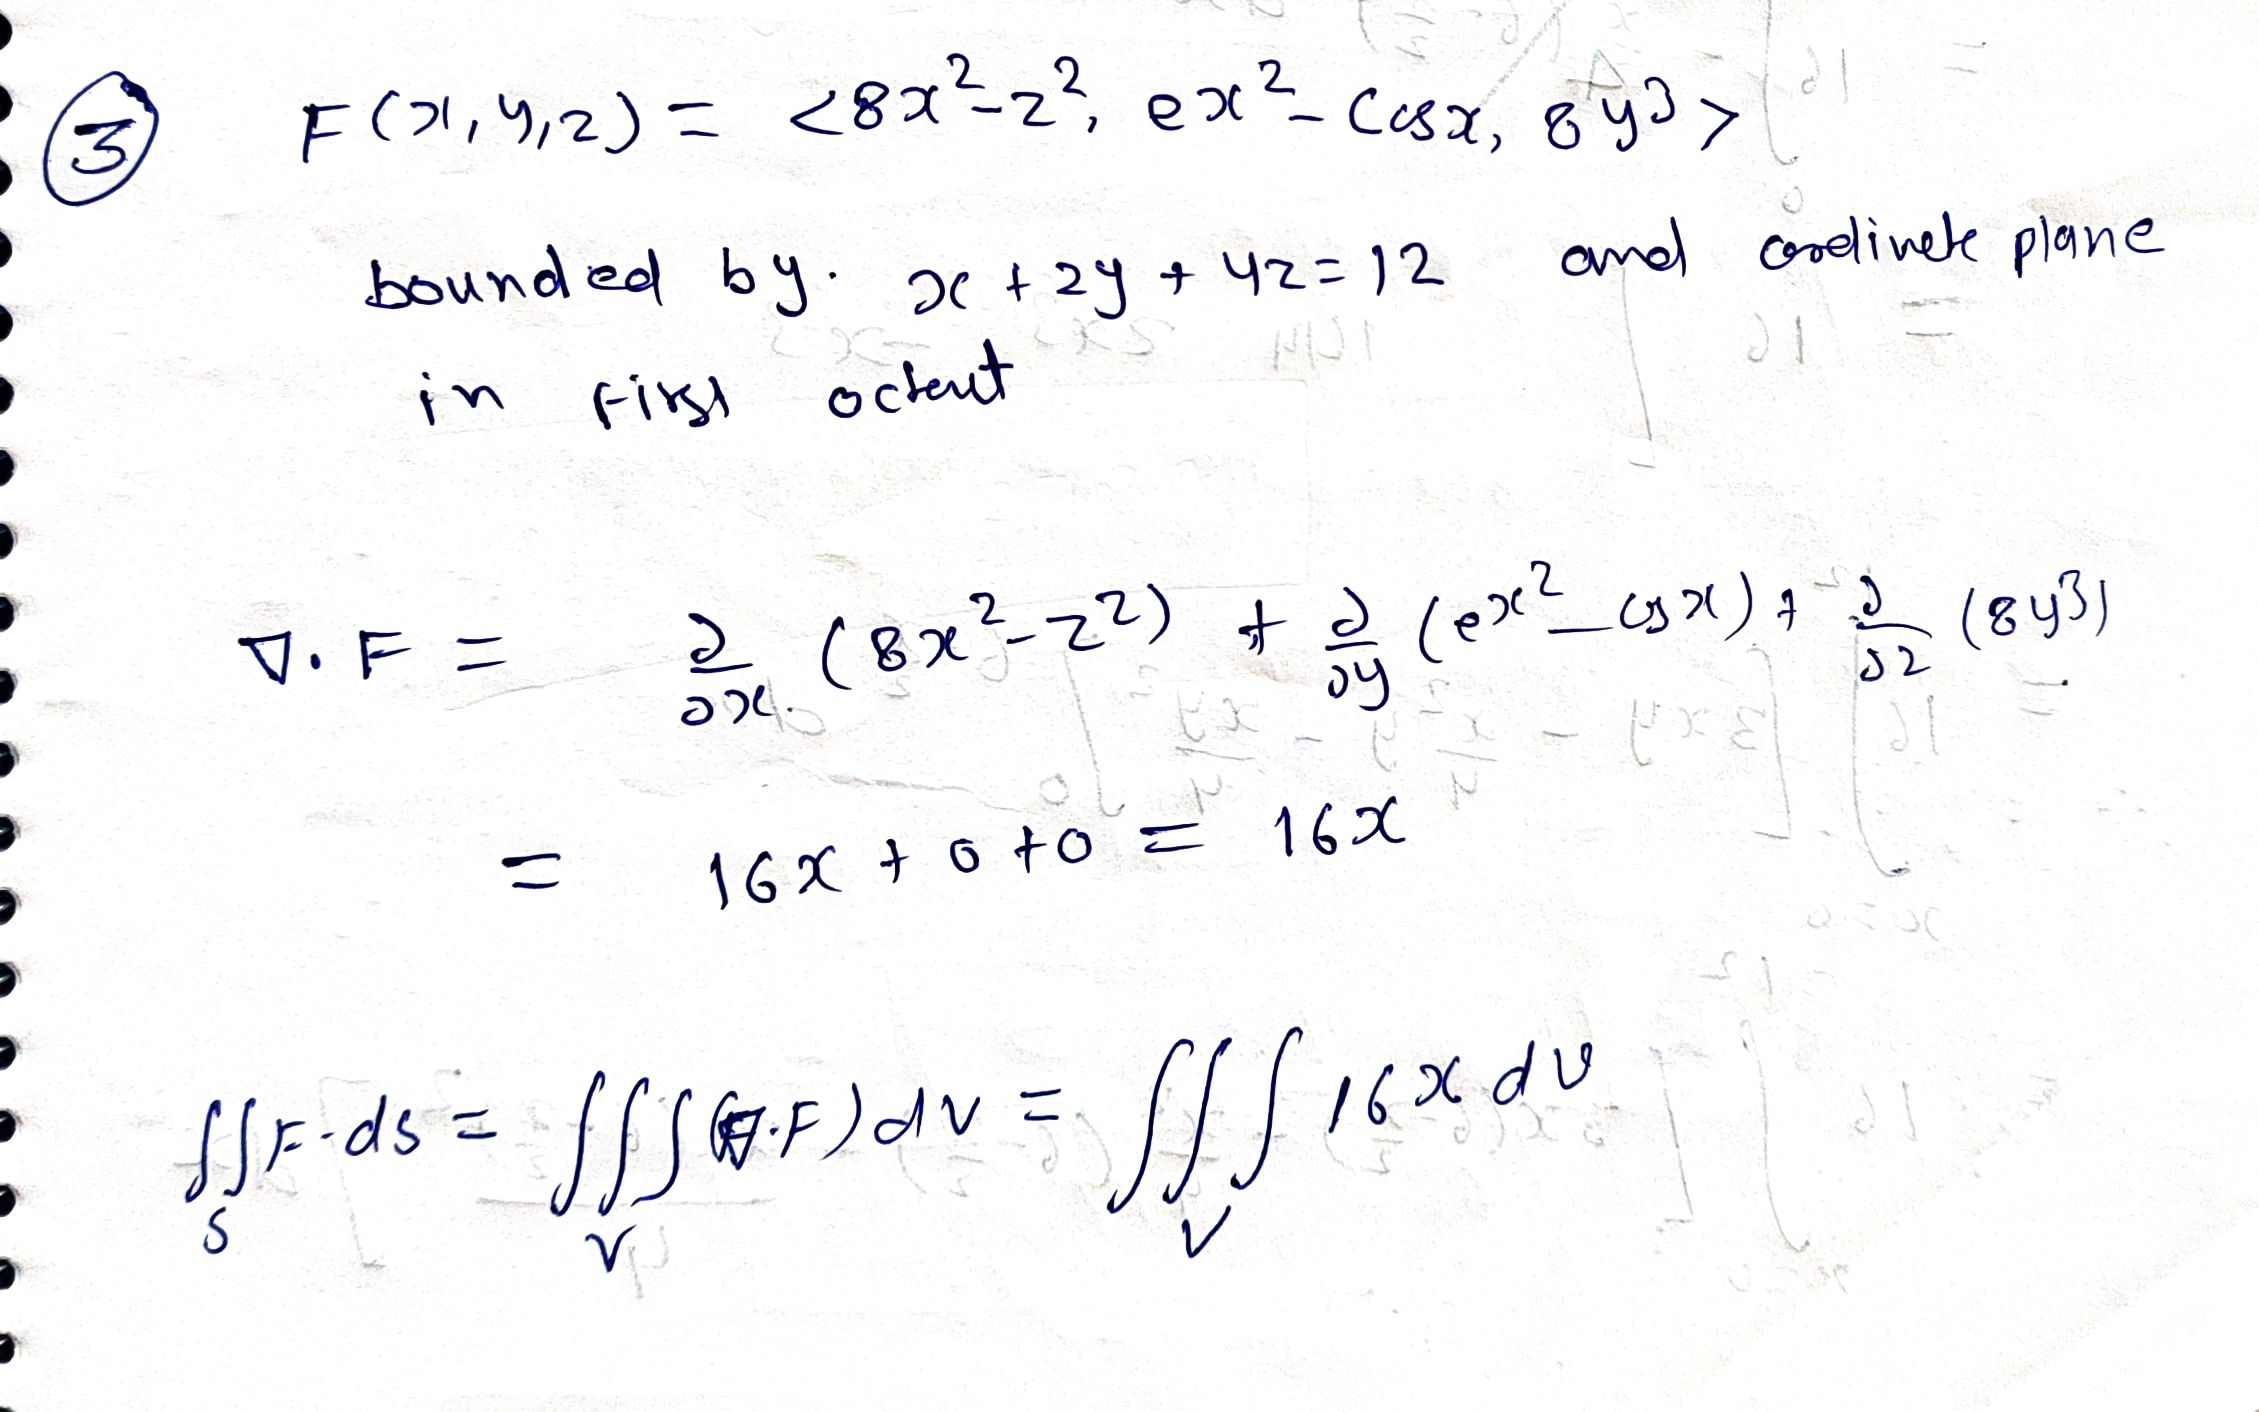 ③ F(x,y,z) = <8x²-z², ex²- Cosx, 8y³>
bounded by. x + 2y + 4z = 12 and cordinate plane
in first octant
∇.F = ∂/∂x (8x²-z²) + ∂/∂y (ex²-cosx) + ∂/∂z (8y³)
= 16x + 0 + 0 = 16x
∬_S F.ds = ∭_V (∇.F) dv = ∭_V 16x dv